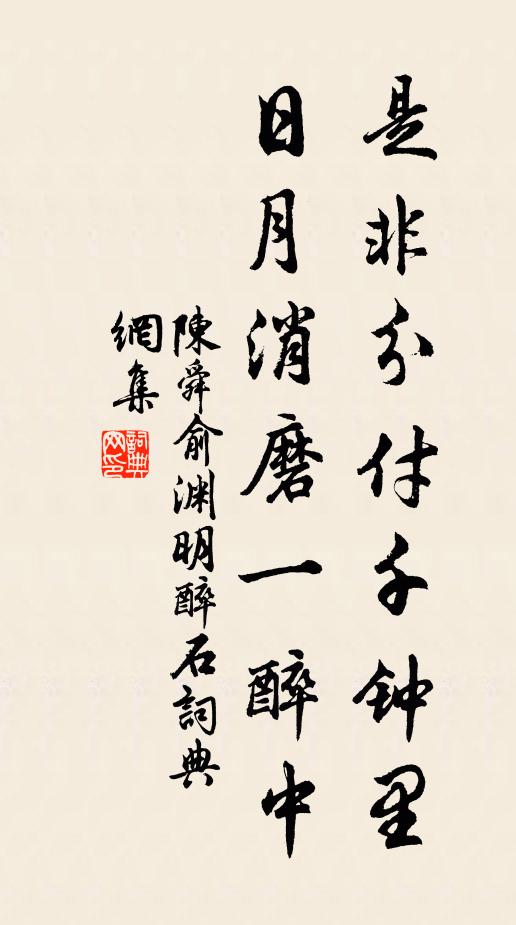 是非分付千钟里
日月消磨一醉中
陳舜俞渊明醉石詞典
網集
詞典
网印